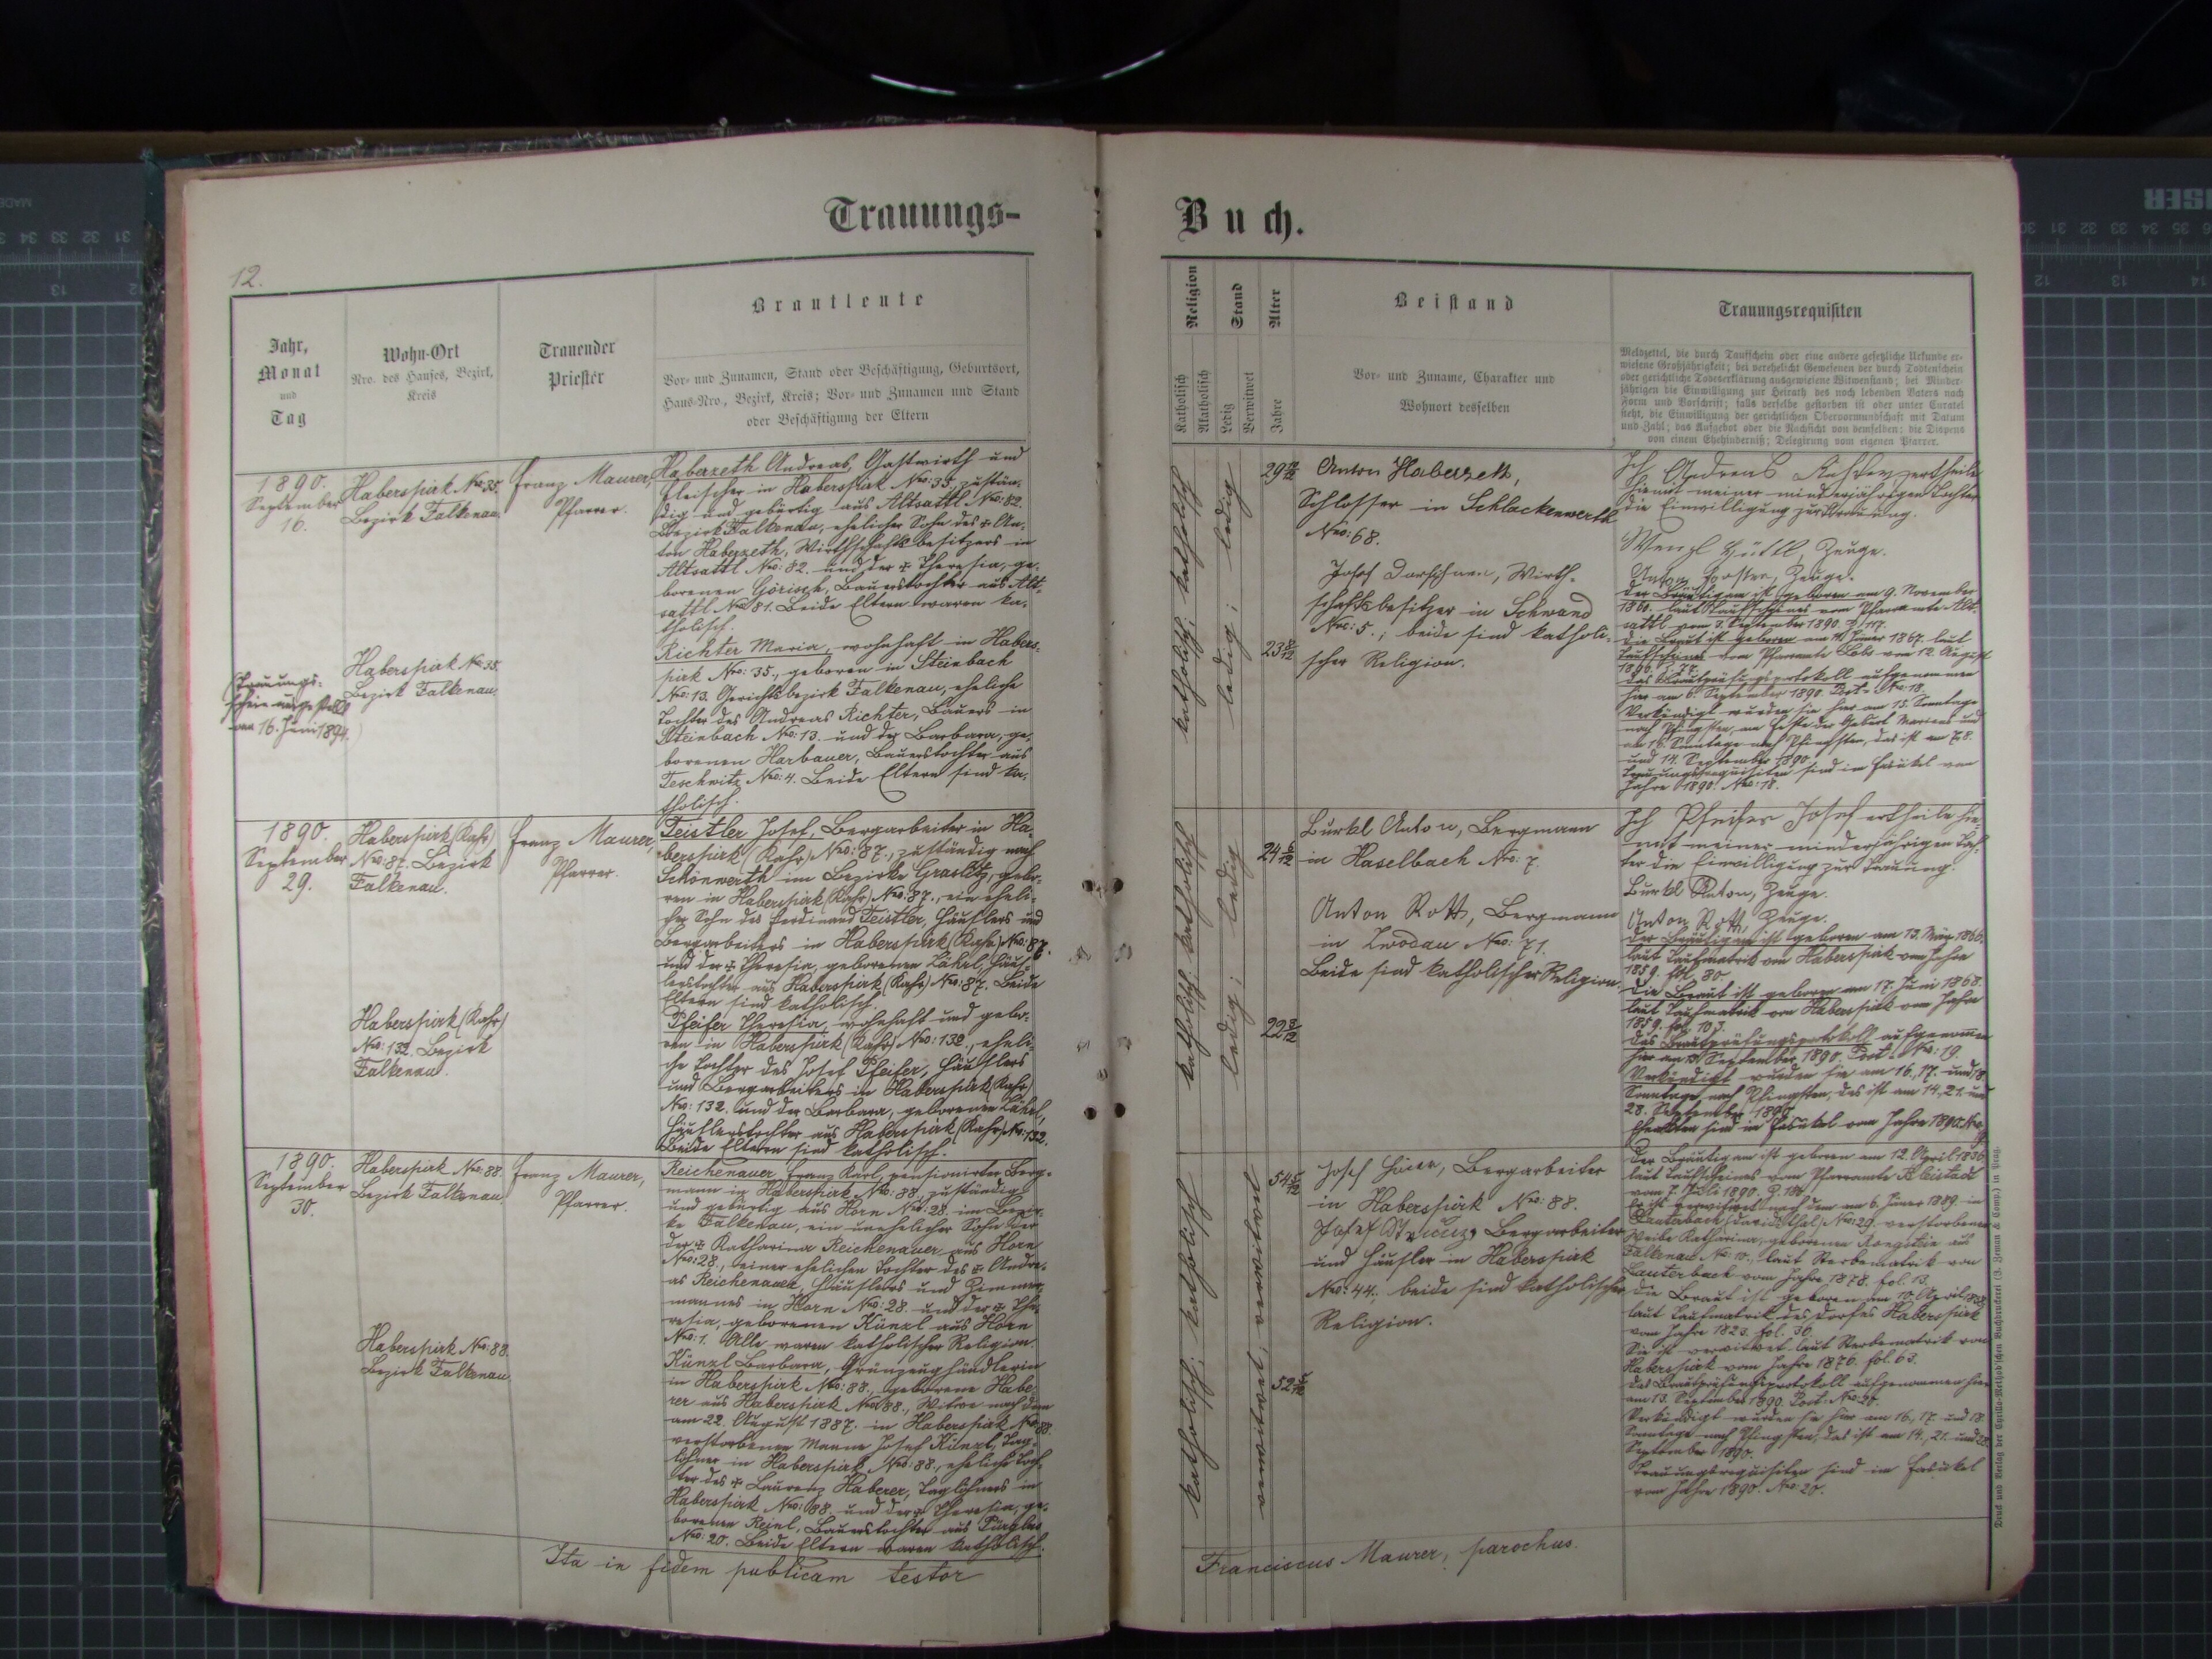 Trauungs-
Buch.
12.
Jahr,
Monat
und
Tag
Wohn-Ort
Nro. des Hauses, Bezirk,
Kreis
Trauender
Priester
Brautleute
Vor- und Zunamen, Stand oder Beschäftigung, Geburtsort,
Haus-Nro., Bezirk, Kreis; Vor- und Zunamen und Stand
oder Beschäftigung der Eltern
Religion
Katholisch
Akatholisch
Stand
Ledig
Verwitwet
Alter
Jahre
Beistand
Vor- und Zuname, Charakter und
Wohnort desselben
Trauungsrequisiten
Meldzettel, die durch Taufschein oder eine andere gesetzliche Urkunde er-
wiesene Großjährigkeit; bei verehelicht Gewesenen der durch Todtenschein
oder gerichtliche Todeserklärung ausgewiesene Witwenstand; bei Minder-
jährigen die Einwilligung zur Heirath des noch lebenden Vaters nach
Form und Vorschrift; falls derselbe gestorben ist oder unter Curatel
steht, die Einwilligung der gerichtlichen Obervormundschaft mit Datum
und Zahl; das Aufgebot oder die Nachsicht von demselben; die Dispens
von einem Ehehinderniß; Delegirung vom eigenen Pfarrer.
1890.
September
16.
Haberspirk Nro: 35.
Bezirk Falkenau.
Franz Maurer,
Pfarrer.
Haberzeth Andreas, Gastwirth und
Fleischer in Haberspirk Nro: 35. zustän-
dig und gebürtig aus Altsattl Nro: 82.
Bezirk Falkenau, ehelicher Sohn des + An-
ton Haberzeth, Wirthschaftsbesitzers in
Altsattl Nro: 82. und der + Theresia, ge-
borenen Görisch, Bauerstochter aus Alt-
sattl Nro: 81. Beide Eltern waren ka-
tholisch.
Haberspirk Nro: 35.
Bezirk Falkenau.
(Trauungs-
schein ausgestellt
am 16. Juni 1894.)
Richter Maria, wohnhaft in Habers-
pirk Nro: 35., geboren in Steinbach
Nro: 13. Gerichtsbezirk Falkenau, eheliche
Tochter des Andreas Richter, Bauers in
Steinbach Nro: 13. und der Barbara, ge-
borenen Harbauer, Bauerstochter aus
Teschwitz Nro: 4. Beide Eltern sind ka-
tholisch.
katholisch; katholisch
ledig; ledig
29 10/12
23 8/12
Anton Haberzett,
Schlosser in Schlackenwerth
Nro: 68.
Josef, Wirth-
schaftsbesitzer in Schwand
Nro: 5.; beide sind katholi-
scher Religion.
Ich Andreas Richter ertheile
hiemit meiner minderjährigen Tochter
die Einwilligung zur Trauung.
Wenzl Hüttl, Zeuge.
Anton Forster, Zeuge.
Der Bräutigam ist geboren am 9. November
1860. laut Taufscheines vom Pfarramte Alt-
sattl vom 3. September 1890. Z. 117.
Die Braut ist geboren am Jänner 1867. laut
Taufscheines vom Pfarramte vom 12. August
Das Brautprüfungsprotokoll aufgenommen
hier am 6. September 1890. Post-Nro: 18.
Verkündigt wurden sie hier am 15. Sonntage
nach Pfingsten, am Feste der Geburt Mariens und
am 16. Sonntage nach Pfingsten, das ist am 7. 8.
und 14. September 1890.
Trauungsrequisiten sind im Fasükel vom
Jahre 1890. Nro: 18.
1890.
September
29.
Haberspirk (Kahr)
Nro: 87. Bezirk
Falkenau.
Franz Maurer,
Pfarrer.
Teistler Josef, Bergarbeiter in Ha-
berspirk (Kahr) Nro: 87., zuständig nach
Schönwerth im Bezirke Graslitz, gebo-
ren in Haberspirk (Kahr) Nro: 87., ein eheli-
cher Sohn des Ferdinand Teistler, Häuslers und
Bergarbeiters in Haberspirk (Kahr) Nro: 87.
und der + Theresia, geborenen Löhrl, Häus-
lerstochter aus Haberspirk (Kahr) Nro: 87. Beide
Eltern sind katholisch.
Haberspirk (Kahr)
Nro: 132. Bezirk
Falkenau.
Pfeifer Theresia, wohnhaft und gebo-
ren in Haberspirk (Kahr) Nro: 132., eheli-
che Tochter des Josef Pfeifer, Häuslers
und Bergarbeiters in Haberspirk (Kahr)
Nro: 132. und der Barbara, geborenen Löhrl,
Häuslerstochter aus Haberspirk (Kahr) Nro: 132.
Beide Eltern sind katholisch.
katholisch; katholisch
ledig; ledig
24 6/12
22 3/12
Burkl Anton, Bergmann
in Haselbach Nro: 7.
Anton Rott, Bergmann
in Zwodau Nro: 71.
Beide sind katholischer Religion.
Ich Pfeifer Josef ertheile hie-
mit meiner minderjährigen Toch-
ter die Einwilligung zur Trauung.
Burkl Anton, Zeuge.
Anton Rott, Zeuge.
Der Bräutigam ist geboren am 13. März 1866.
laut Taufmatrik von Haberspirk vom Jahre
1859. fol. 80.
Die Braut ist geboren am 17. Juni 1868.
laut Taufmatrik von Haberspirk vom Jahre
1859. fol. 103.
Das Brautprüfungsprotokoll aufgenommen
hier am 13. September 1890. Post-Nro: 19.
Verkündigt wurden sie am 16., 17. und 18.
Sonntage nach Pfingsten, das ist am 14., 21. und
28. September 1890.
Eheakten sind im Fasükel vom Jahre 1890. Nro: 19.
1890.
September
30.
Haberspirk Nro: 88.
Bezirk Falkenau.
Franz Maurer,
Pfarrer.
Reichenauer Franz Karl, pensionirter Berg-
mann in Haberspirk Nro: 88., zuständig
und gebürtig aus Horn Nro: 28. im Bezir-
ke Falkenau, ein unehelicher Sohn der
der + Katharina Reichenauer aus Horn
Nro: 28., einer ehelichen Tochter des + Andre-
as Reichenauer, Häuslers und Zimmer-
mannes in Horn Nro: 28. und der + The-
resia, geborenen Künzl aus Horn
Nro: 1. Alle waren katholischer Religion.
Haberspirk Nro: 88.
Bezirk Falkenau.
Künzl Barbara, Grünzeughändlerin
in Haberspirk Nro: 88., geborene Habe-
rer aus Haberspirk Nro: 88., Witwe nach dem
am 22. August 1887. in Haberspirk Nro: 88.
verstorbenen Manne Josef Künzl, Tag-
löhner in Haberspirk Nro: 88., eheliche Toch-
ter des + Laurenz Haberer, Taglöhners in
Haberspirk Nro: 88. und der + Theresia, ge-
borenen Reinl, Bauerstochter aus Pürgles
Nro: 20. Beide Eltern waren katholisch.
katholisch; katholisch
verwitwet; verwitwet
54 5/12
52 5/12
Josef, Bergarbeiter
in Haberspirk Nro: 88.
Josef Bergarbeiter
und Häusler in Haberspirk
Nro: 44., beide sind katholischer
Religion.
Der Bräutigam ist geboren am 12. April 1836.
laut Taufscheines vom Pfarramte
vom 7. Juli 1890. Z.
Er ist verwitwet nach dem am 6. Jänner 1889. in
Lauterbach Nro: 29. verstorbenen
Weibe Katharina, geborenen aus
Falkenau No: 10., laut Sterbematrik von
Lauterbach vom Jahre 1878. fol. 13.
Die Braut ist geboren am 10. April 1838.
laut Taufmatrik des Dorfes Haberspirk
vom Jahre 1825. fol. 36.
Sie ist verwitwet laut Sterbematrik von
Haberspirk vom Jahre 1876. fol. 63.
Das Brautprüfungsprotokoll aufgenommen hier
am 13. September 1890. Post-Nro: 20.
Verkündigt wurden sie hier am 16., 17. und 18.
Sonntage nach Pfingsten, das ist am 14., 21. und 28.
September 1890.
Trauungsrequisiten sind im Fasükel
vom Jahre 1890. Nro: 20.
Ita in fidem publicam testor
Franciscus Maurer, parochus.
Druck und Verlag der Cyrillo-Method'schen Buchdruckerei (J. Zeman & Comp.) in Prag.